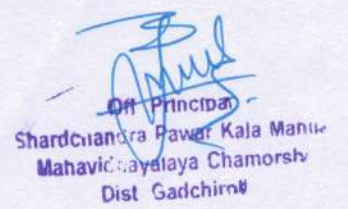 Off Principal
Shardchandra Pawar Kala Manik
Mahavidyalaya Chamorshi
Dist Gadchiroli